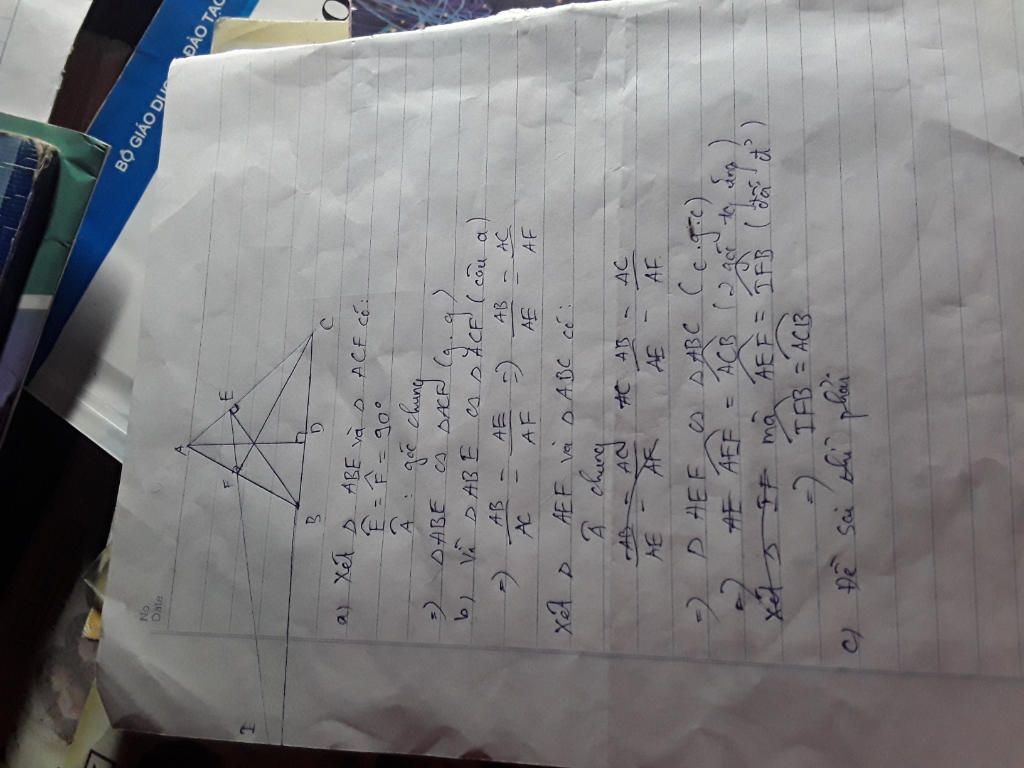 BỘ GIÁO DỤC
ĐÀO TẠO
No
Date
A
F
E
I
B
D
C
a) Xét Δ ABE và Δ ACF có:
Ê = F̂ = 90°
Â : góc chung
=) Δ ABE ∽ Δ ACF (g.g)
b) Vì Δ ABE ∽ Δ ACF (câu a)
=) AB/AC = AE/AF =) AB/AE = AC/AF
Xét Δ AEF và Δ ABC có:
Â chung
AB/AE = AC/AF AC AB/AE = AC/AF
=) Δ AEF ∽ Δ ABC (c-g-c)
=) AE AEF = ACB (2 góc tg ứng)
Xét Δ IF mà AEF = IFB (đđ)
=) IFB = ACB
c) Đề sai thì phải